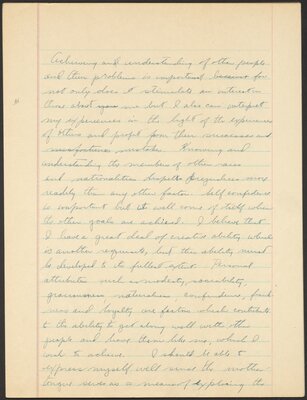 Achieving and understanding of other people
and their problems is important because for
not only does it stimulate an interest in
those about you me but I also can interpret
my experiences in the light of the experiences
of others and profit from their successes and
misfortunes mistakes. Knowing and
understanding the members of other races
and nationalities dispells prejudices more
readily than any other factor. Self confidence
is important but it will come of itself when
the other goals are achieved. I believe that
I have a great deal of creative ability which
is another requisite, but this ability must
be developed to its fullest extent. Personal
attributes such as modesty, sociability,
graciousness, naturalness, confidence, frank
ness and loyalty are factors which contribute
to the ability to get along well with other
people and have them like me, which I
wish to achieve. I should be able to
express myself well since the mother
tongue serves as a means of exploring the